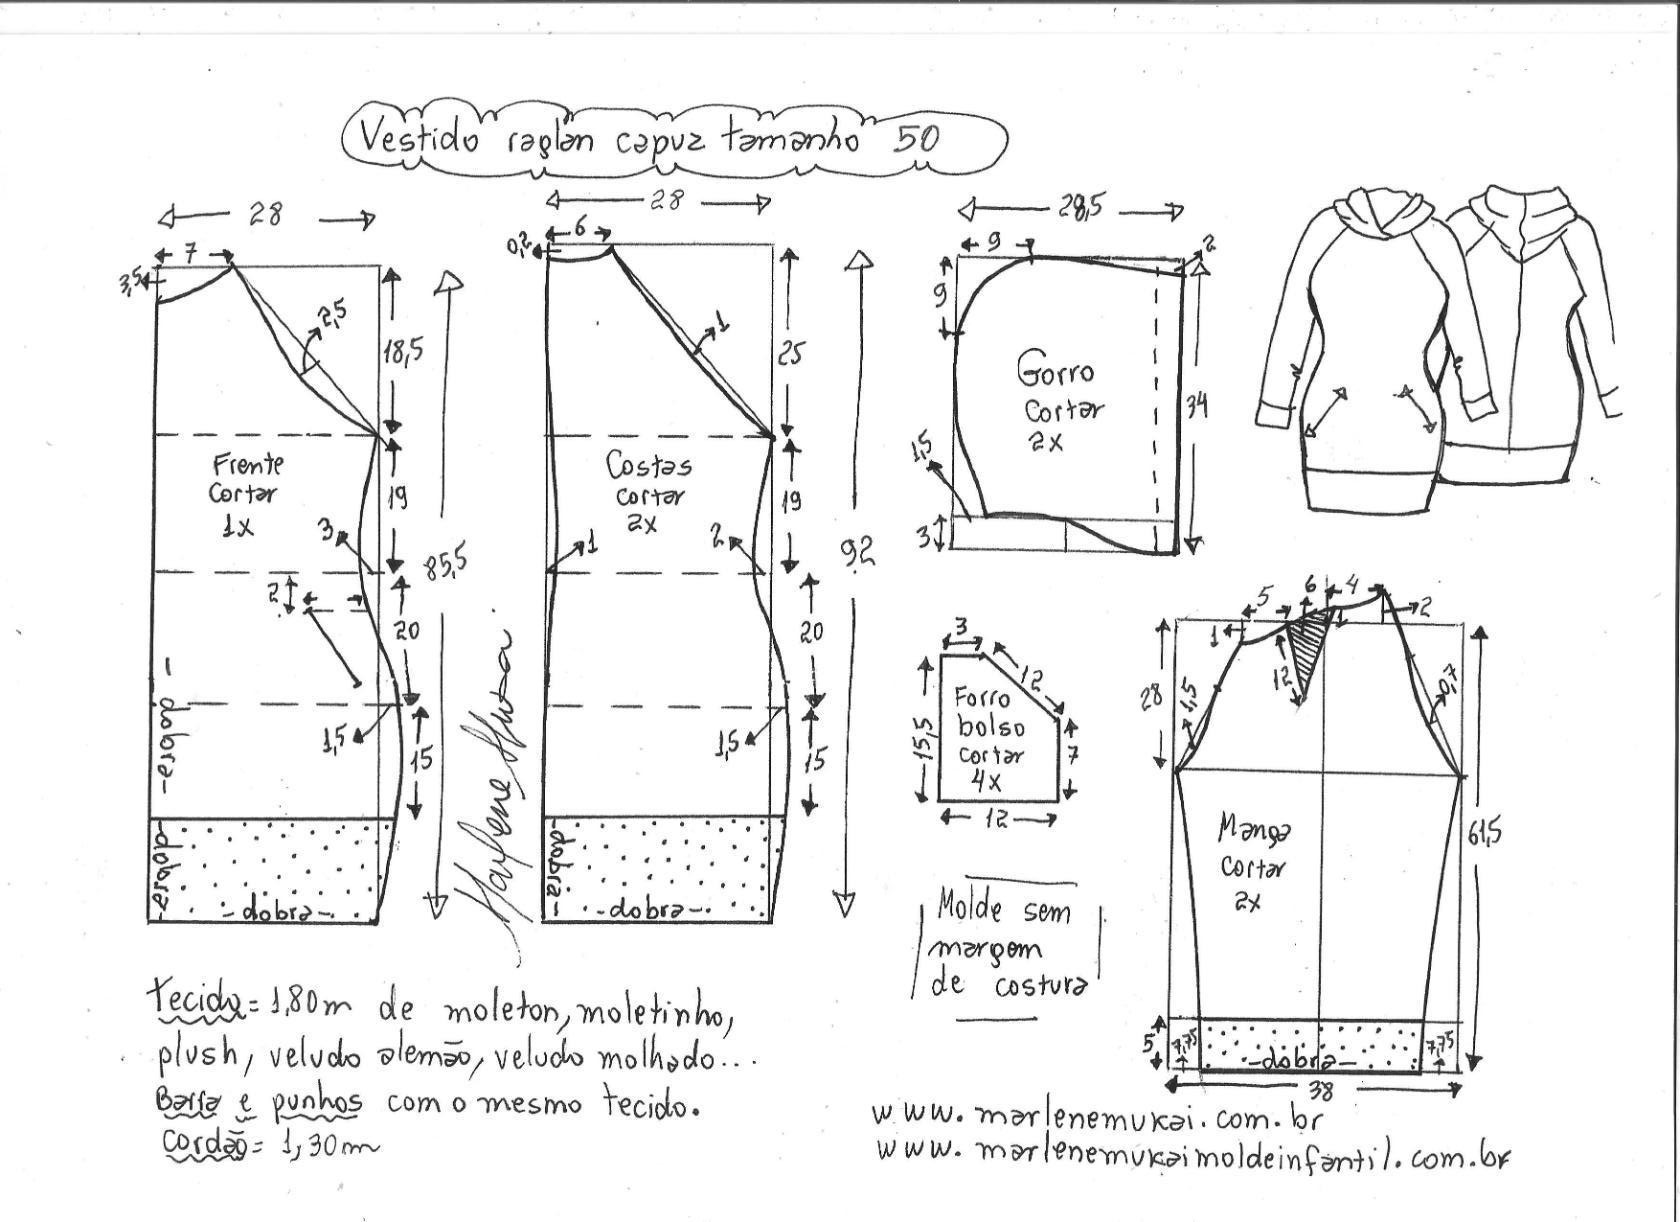 Vestido raglan capuz tamanho 50
28
7
3,5
2,5
18,5
Frente
Cortar
1x
19
3
2
20
85,5
1,5
15
- dobra -
- dobra -
- dobra -
28
6
0,2
1
25
Costas
cortar
2x
19
1
2
20
92
1,5
15
- dobra -
- dobra -
28,5
9
2
9
Gorro
cortar
2x
34
1,5
3
3
12
Forro
bolso
cortar
4x
15,5
7
12
5
6
4
1
1
2
12
28
1,5
0,7
Manga
cortar
2x
61,5
5
7,75
- dobra -
7,75
38
Molde sem
margem
de costura
Tecido = 1,80m de moleton, moletinho,
plush, veludo alemão, veludo molhado...
Barra e punhos com o mesmo tecido.
Cordão = 1,30m
www.marlenemukai.com.br
www.marlenemukaimoldeinfantil.com.br